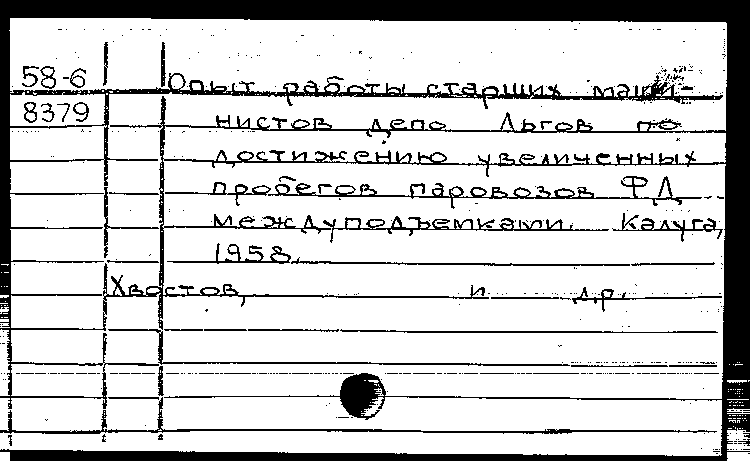 58-6 Опыт работы старших маши-
8379 нистов депо Льгов по
достижению увеличенных
пробегов паровозов ФД
междуподъемками. Калуга,
1958.
Хвостов, и др.